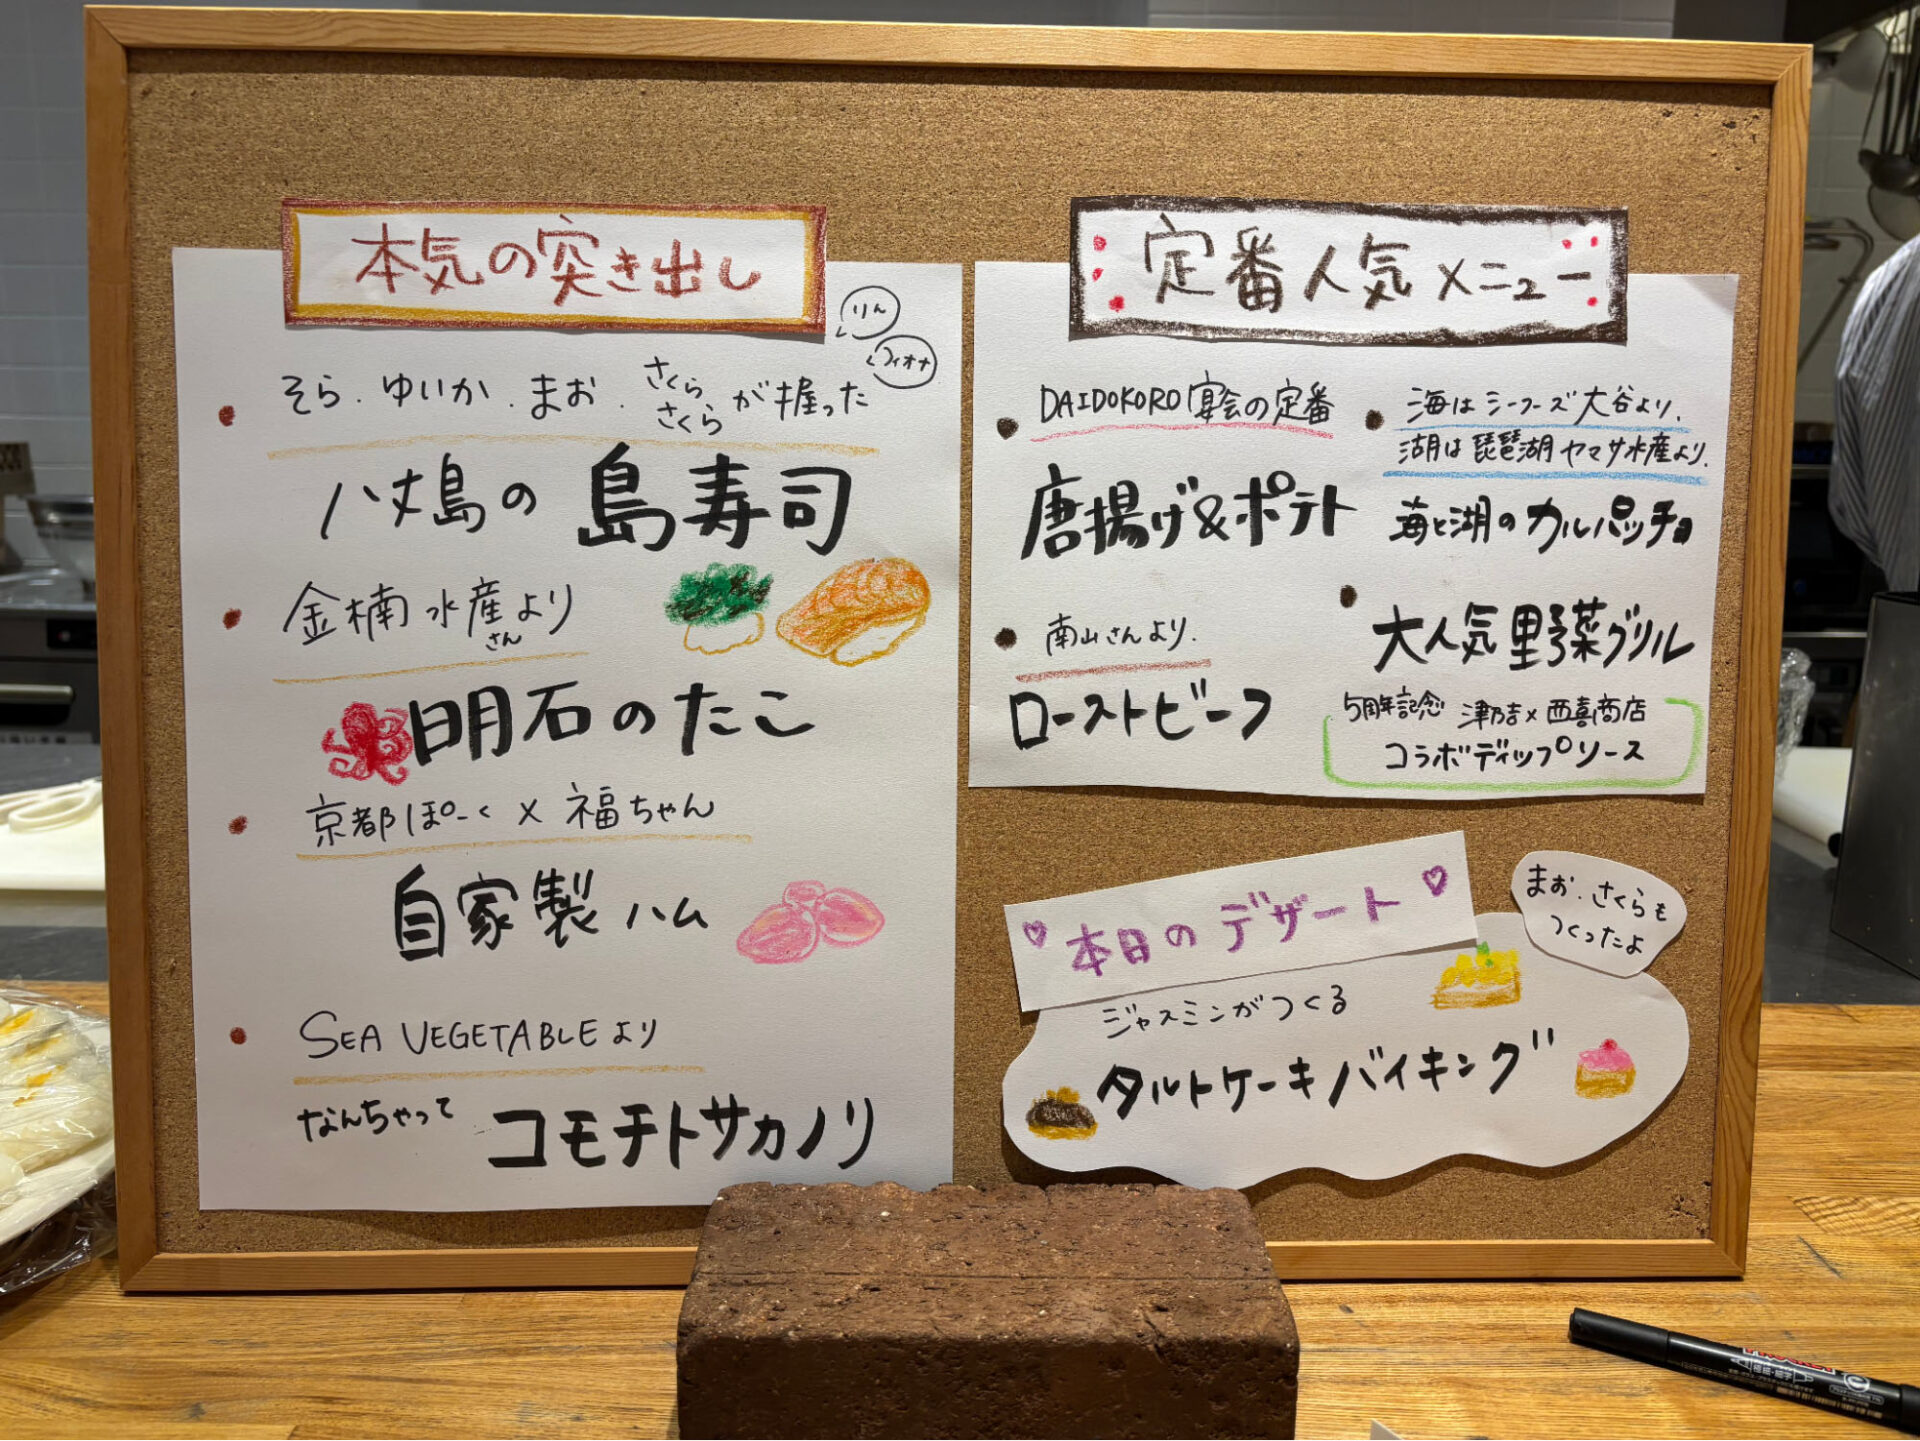 本気の突き出し
りん
フィオナ
そら.ゆいか.まお.さくら さくら が握った
八丈島の 島寿司
金楠水産さんより
明石のたこ
京都ぽーく×福ちゃん
自家製ハム
SEA VEGETABLEより
なんちゃって コモチトサカノリ
定番人気メニュー
DAIDOKORO宴会の定番
唐揚げ&ポテト
海はシーフーズ大谷より.
湖は琵琶湖ヤマサ水産より.
海と湖のカルパッチョ
南山さんより.
ローストビーフ
大人気野菜グリル
5周年記念 津乃吉×西喜商店
コラボディップソース
本日のデザート
まお.さくらも
つくったよ
ジャスミンがつくる
タルトケーキバイキング